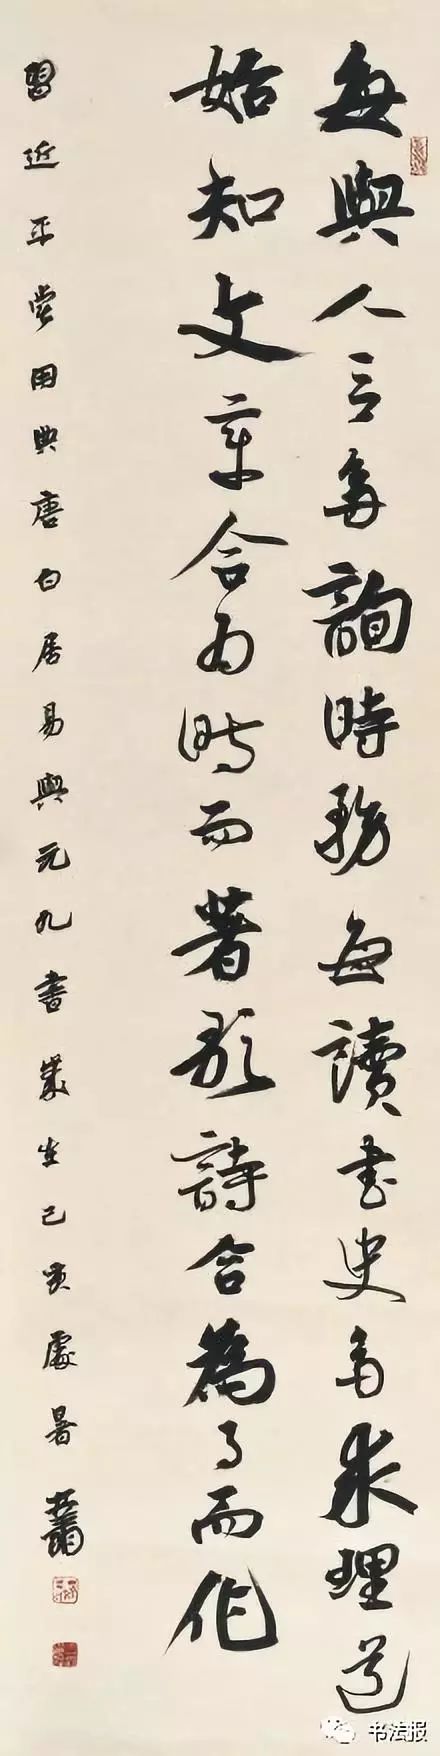 每與人言多詢時務每讀書史多求理道
始知文章合为時而著歌詩合為事而作
習近平常用典唐白居易與元九書歲在己亥處暑
书法报